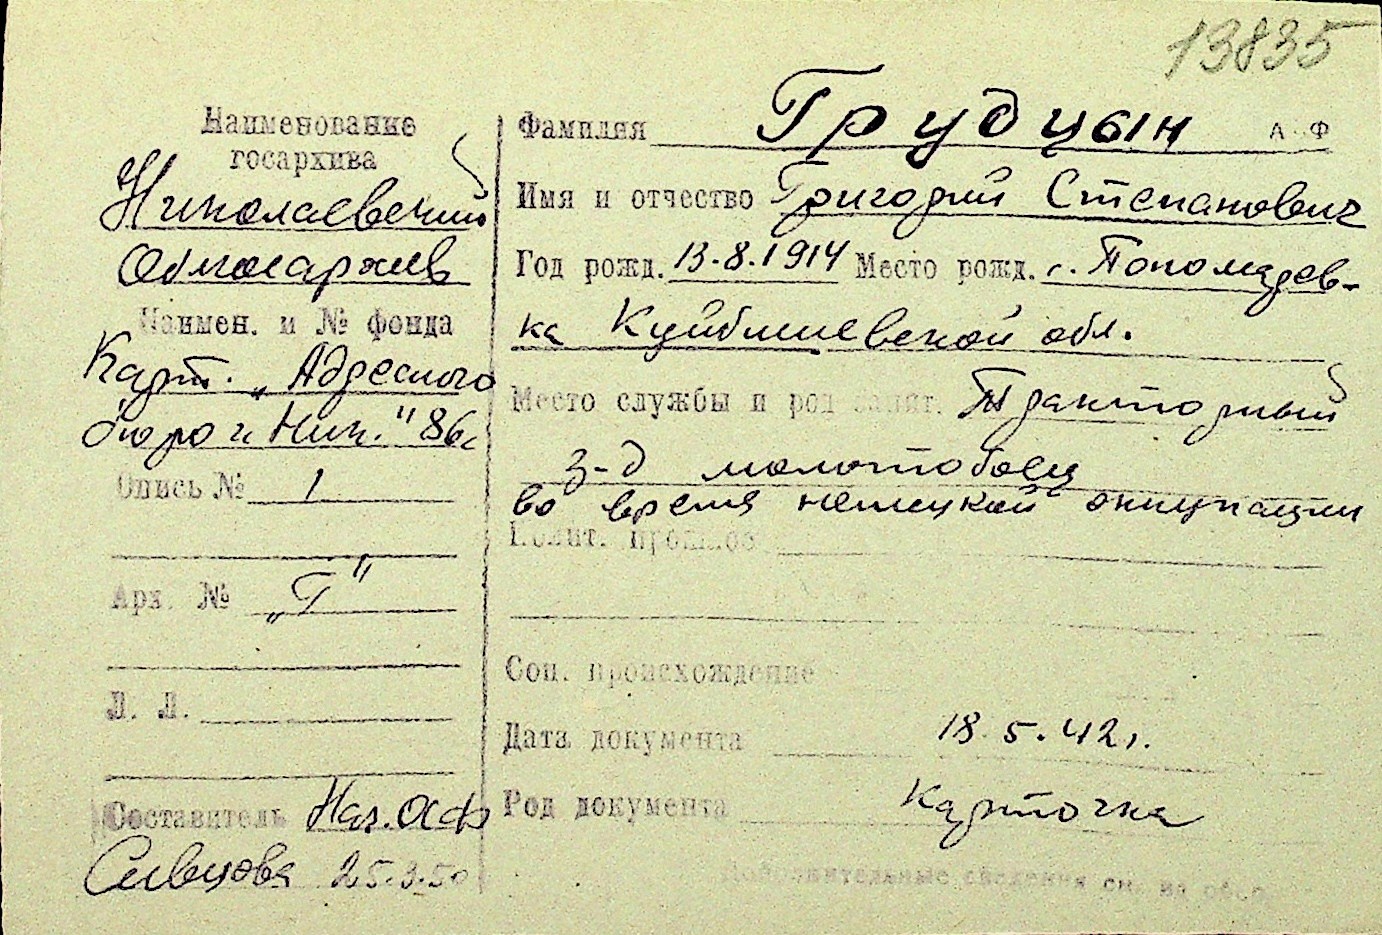 13835
Наименование
госархива
Николаевский
Облгосархив
Наимен. и № фонда
Карт. „Адресного
бюро г. Ник." 86с
Опись № 1
Арх. № „Г"
Л. Л.
Составитель Нач. ОСФ
Сивцова 25.3.50
Фамилия Грудцын А Ф
Имя и отчество Григорий Степанович
Год рожд. 13.8.1914 Место рожд. с. Пономарев-
ка Куйбышевской обл.
Место службы и род занят. Тракторный
з-д молотобоец
во время немецкой оккупации
Полит. прошлое
Соц. происхождение
Дата документа 18.5.42г.
Род документа Карточка
Дополнительные сведения см. на обор.